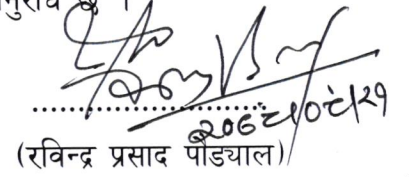 नुरोध छ ।
........................................
२०६८।०८।२१
(रविन्द्र प्रसाद पौड्याल)